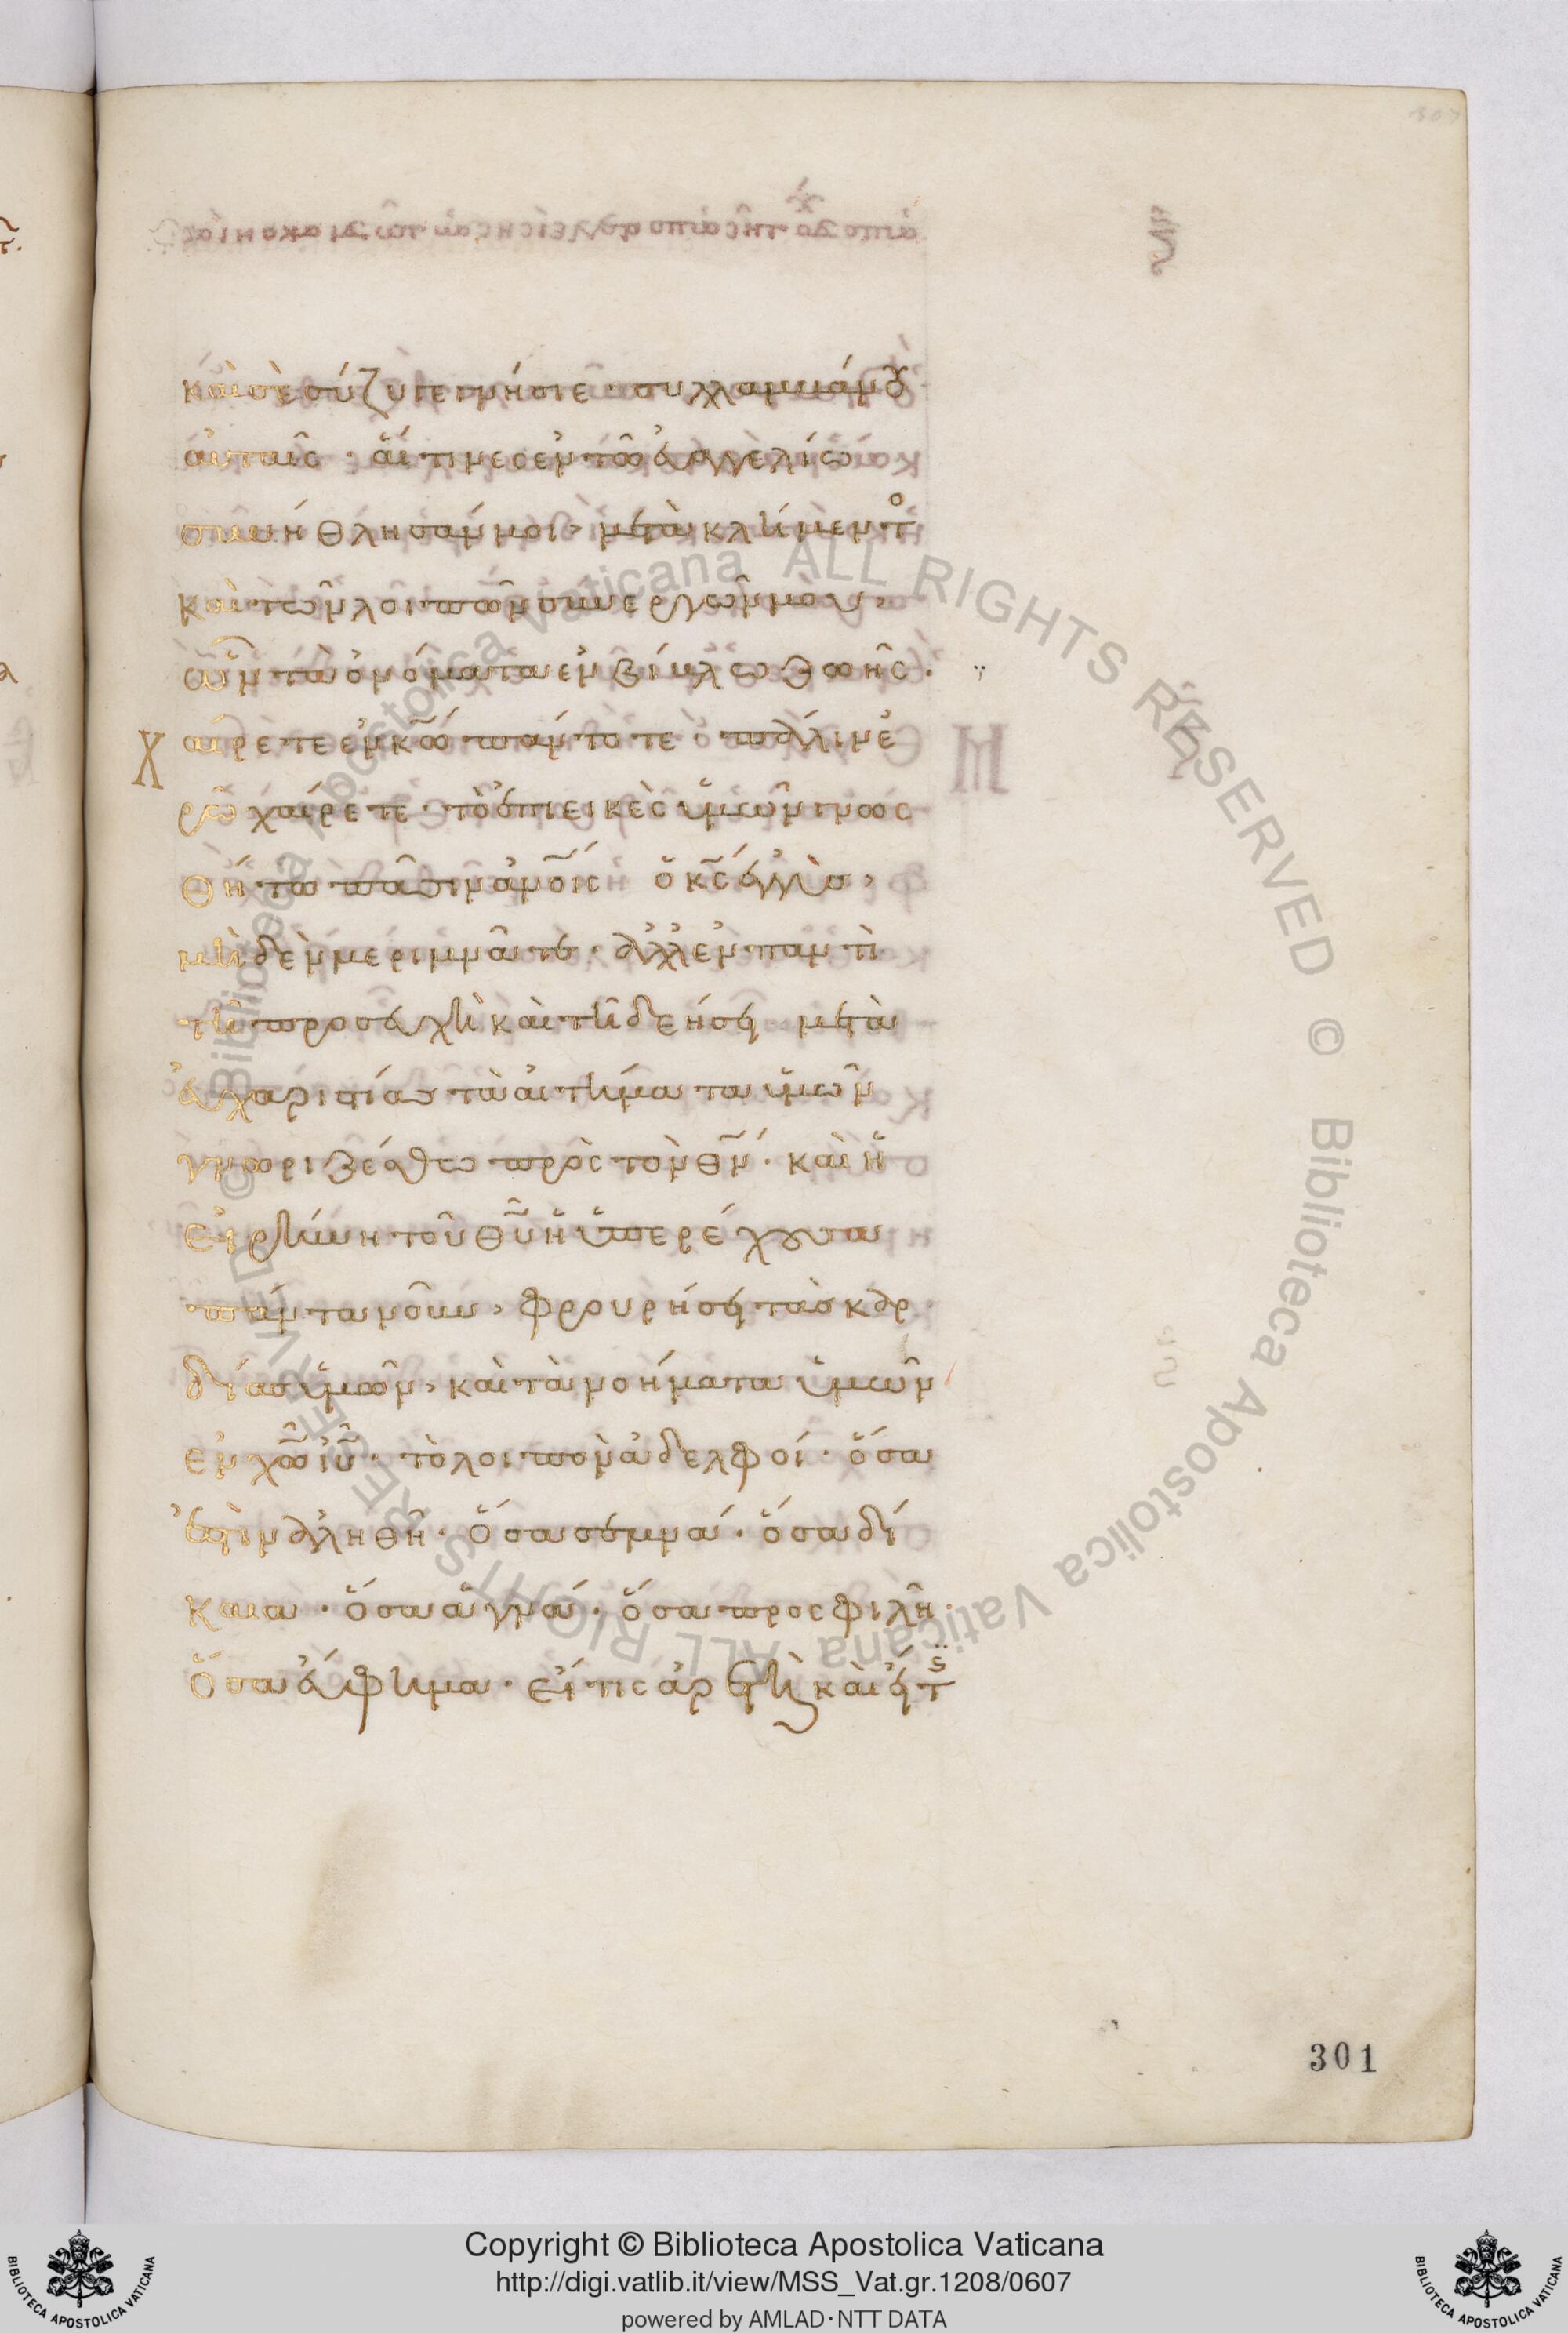 καὶ σὲ σύζυγε γνήσιε · συλλαμβάνου
αὐταῖς · αἵτινες ἐν τῶ εὐαγγελίω
συνήθλησάν μοι, μετὰ κλήμεντο
καὶ τῶν λοιπῶν συνεργῶν μου,
ὧν τὰ ὀνόματα ἐν βίβλω ζωῆς .
Χαίρετε ἐν κω πάντοτε · πάλιν ἐ
ρῶ χαίρετε · τὸ ἐπιεικὲς ὑμῶν γνωσ
θήτω πᾶσιν ανοις ὁ κς ἐγγύς,
μηδὲν μεριμνᾶτε · ἀλλ' ἐν παντὶ
τῆ προσευχῆ καὶ τῆ δεήσει μετὰ
εὐχαριστίας τὰ αἰτήματα ὑμῶν
γνωριζέσθω πρὸς τὸν θν · καὶ ἡ
εἰρήνη τοῦ θυ ἡ ὑπερέχουσα
πάντα νοῦν, φρουρήσει τὰς καρ
δίας ὑμῶν, καὶ τὰ νοήματα ὑμῶν
ἐν χω ιυ · τὸ λοιπὸν ἀδελφοί · ὅσα
ἐστὶν ἀληθῆ · ὅσα σεμνά · ὅσα δί
καια · ὅσα ἁγνά · ὅσα προσφιλῆ ·
ὅσα εὔφημα · εἴ τις ἀρετὴ καὶ εἴ τς
301
© Biblioteca Apostolica Vaticana ALL RIGHTS RESERVED © Biblioteca Apostolica Vaticana ALL RIGHTS RESERVED
Copyright © Biblioteca Apostolica Vaticana
http://digi.vatlib.it/view/MSS_Vat.gr.1208/0607
powered by AMLAD·NTT DATA
BIBLIOTECA APOSTOLICA VATICANA
BIBLIOTECA APOSTOLICA VATICANA